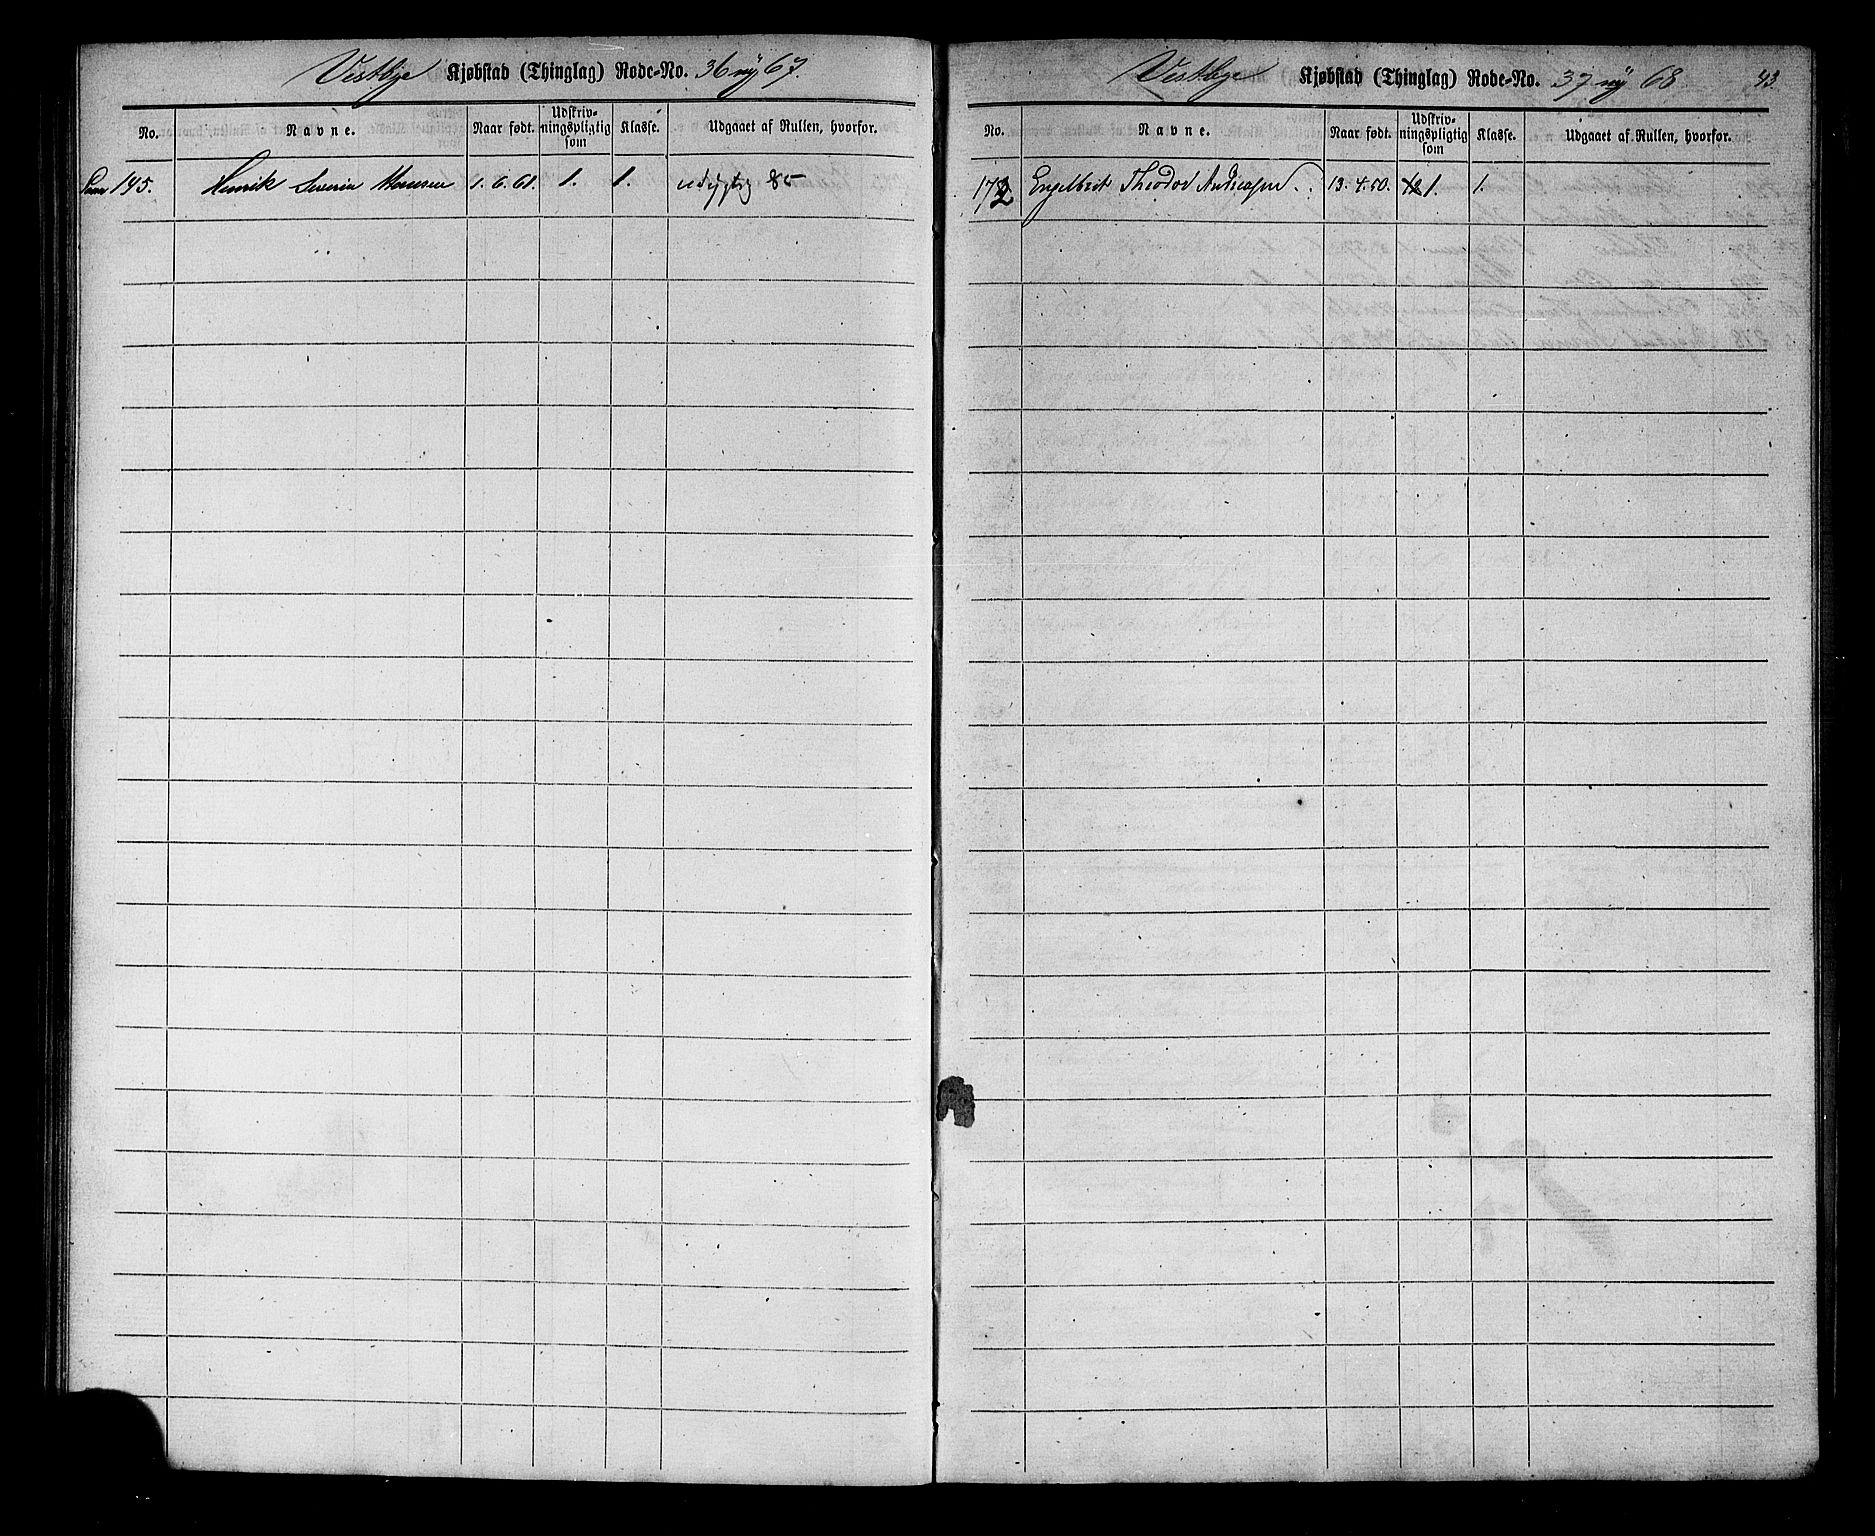 Vestbye Kjøbstad (Thinglag) Rode-No. 36 ny 67.
No. Navne. Naar født. Udskriv-ningspligtig som Klasse. Udgaaet af Rullen, hvorfor.
195. Henrik Severin 1.6.61. 1. 1. 85
Vestbye Kjøbstad (Thinglag) Rode-No. 37 ny 68 43.
No. Navne. Naar født. Udskriv-ningspligtig som Klasse. Udgaaet af Rullen, hvorfor.
172 Engelbret Theodor Andreasen 13.4.50. 1. 1.